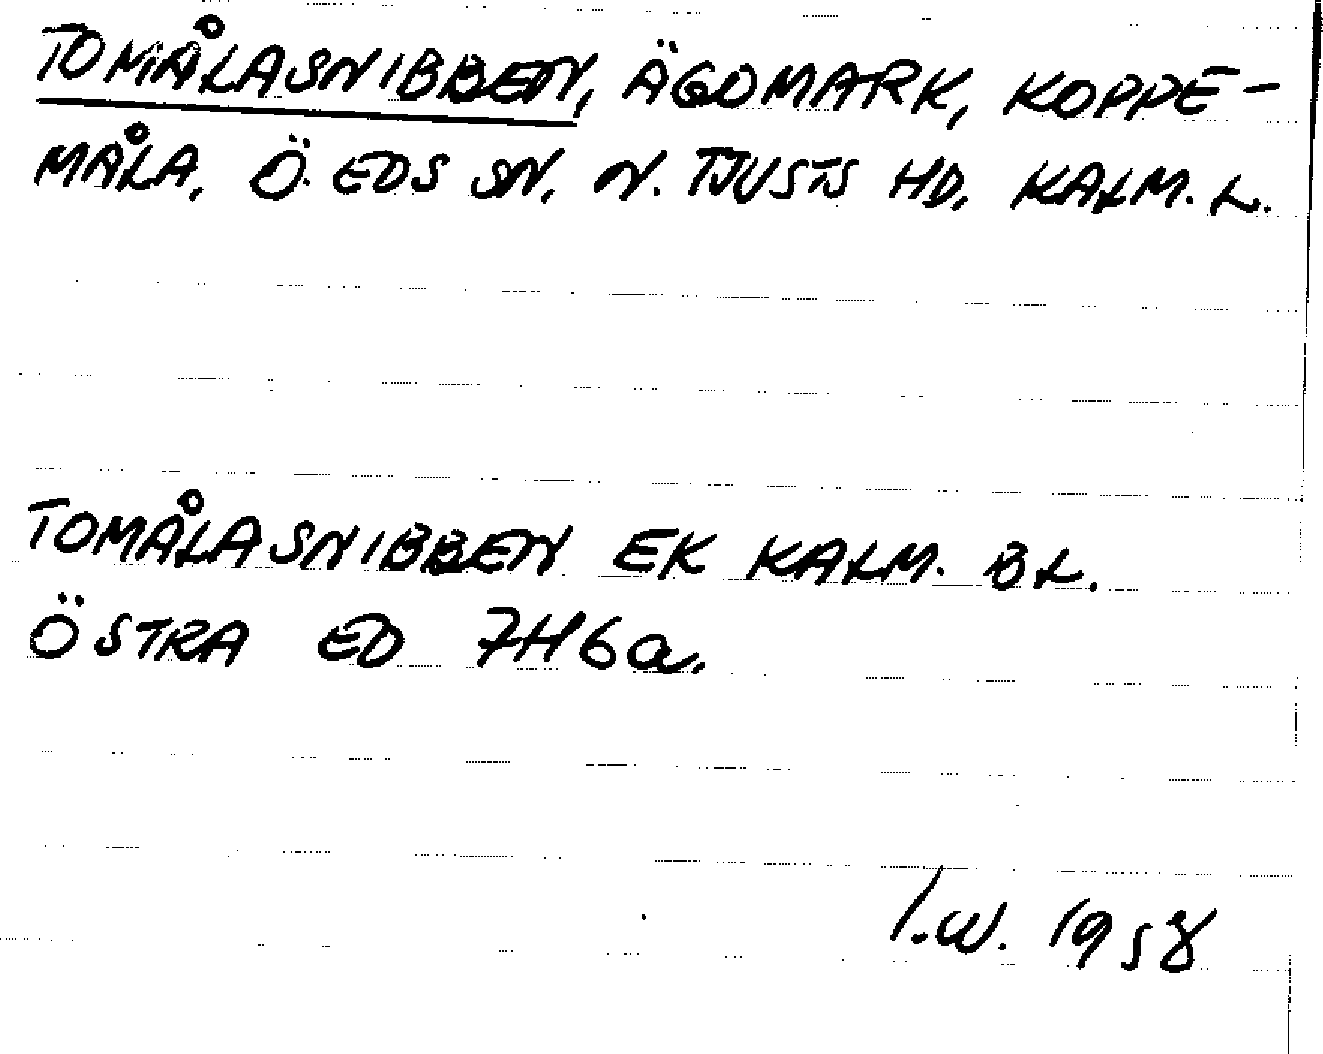 TOMÅLASNIBBEN, ÄGOMARK, KOPPE-
MÅLA, Ö. EDS SN. N. TJUSTS HD. KALM. L.
TOMÅLASNIBBEN EK KALM. BL.
ÖSTRA ED 7H6a.
I.W. 1958